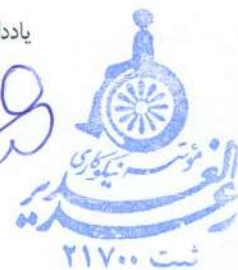 یاددا
مؤسسه نیکوکاری
رعد الغدیر
ثبت ۲۱۷۰۰